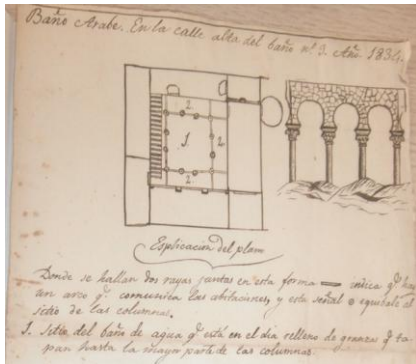 Baño Arabe. En la calle alta del baño nº 3. Año 1834.
2
1
2
2
Esplicacion del plano
Donde se hallan dos rayas juntas en esta forma indica q̃ hay
un arco q̃ comunica las abitaciones, y esta señal o equibale al
sitio de las columnas.
1. Sitio del baño de agua q̃ está en el dia relleno de granzas q̃ ta
pan hasta la mayor parte de las columnas.